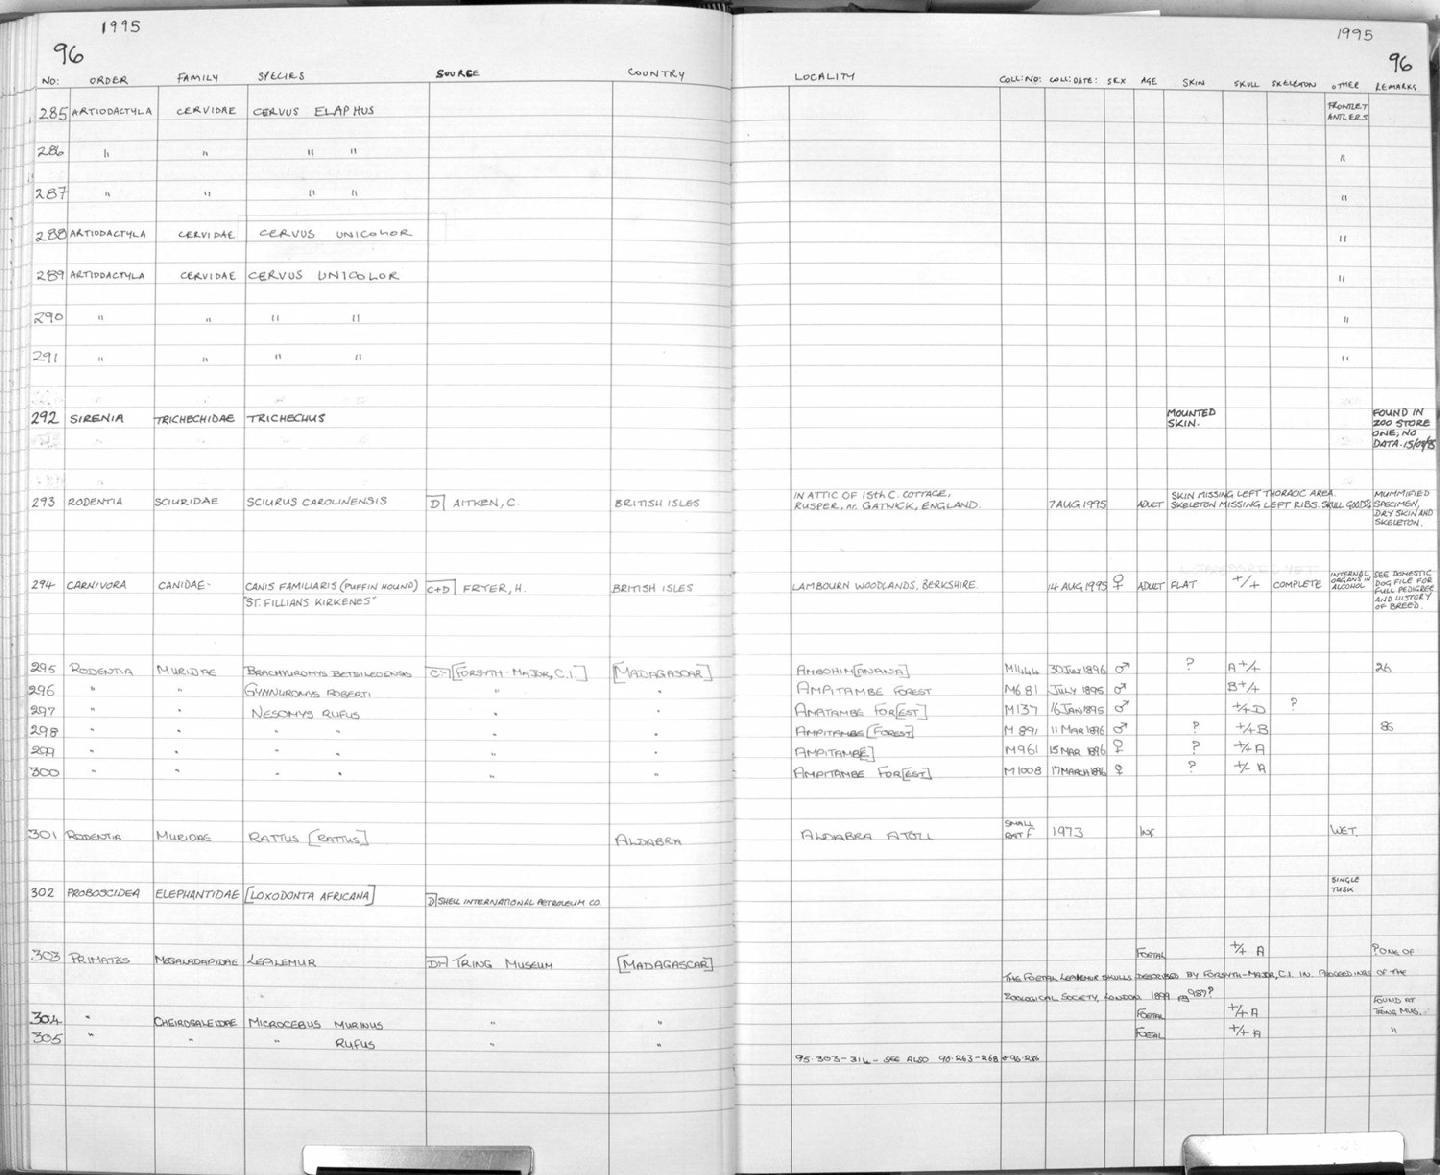 1995 1995
96 96
NO: ORDER FAMILY SPECIES SOURCE COUNTRY LOCALITY COLL:NO: COLL:DATE: SEX AGE SKIN SKULL SKELETON OTHER REMARKS
285 ARTIODACTYLA CERVIDAE CERVUS ELAPHUS FRONTLET ANTLERS
286 " " " " "
287 " " " " "
288 ARTIODACTYLA CERVIDAE CERVUS UNICOLOR "
289 ARTIODACTYLA CERVIDAE CERVUS UNICOLOR "
290 " " " " "
291 " " " " "
292 SIRENIA TRICHECHIDAE TRICHECHUS MOUNTED SKIN. FOUND IN ZOO STORE ONE, NO DATA.
293 RODENTIA SCIURIDAE SCIURUS CAROLINENSIS D AITKEN, C. BRITISH ISLES IN ATTIC OF 15th C. COTTAGE, RUSPER, nr. GATWICK, ENGLAND. 7 AUG 1995 ADULT SKIN MISSING LEFT THORACIC AREA. SKELETON MISSING LEFT RIBS. SKULL GOOD MUMMIFIED SPECIMEN, DRY SKIN AND SKELETON.
294 CARNIVORA CANIDAE CANIS FAMILIARIS (PUFFIN HOUND) C+D FRYER, H. BRITISH ISLES LAMBOURN WOODLANDS, BERKSHIRE. 14 AUG 1995 ♀ ADULT FLAT +/+ COMPLETE INTERNAL ORGANS IN ALCOHOL SEE DOMESTIC DOG FILE FOR FULL PEDIGREE AND HISTORY OF BREED.
"ST. FILLIANS KIRKENES"
295 RODENTIA MURIDAE BRACHYUROMYS BETSILEOENSIS C- [FORSYTH-MAJOR, C.I.] [MADAGASCAR] AMBOHIM[ANANA] M1444 30 ♂ ? A +/+ 26
296 " " GYMNUROMYS ROBERTI " " AMPITAMBE FOREST M681 JULY 1895 ♂ B +/+
297 " " NESOMYS RUFUS " " AMPITAMBE FOR[EST] M137 16 JAN 1895 ♂ +/+ D ?
298 " " " " " " AMPITAMBE [FOREST] M891 11 MAR 1896 ♂ ? +/+ B 86
299 " " " " " " AMPITAMBE] M961 15 MAR 1896 ♀ ? +/+ A
300 " " " " " " AMPITAMBE FOR[EST] M1008 17 MARCH 1896 ♀ ? +/- A
301 RODENTIA MURIDAE RATTUS [RATTUS] ALDABRA ALDABRA ATOLL SMALL RAT F 1973 WET.
302 PROBOSCIDEA ELEPHANTIDAE [LOXODONTA AFRICANA] D SHELL INTERNATIONAL PETROLEUM CO. SINGLE TUSK
303 PRIMATES MEGALADAPIDAE LEPILEMUR TRING MUSEUM [MADAGASCAR] FOETAL +/+ A ? ONE OF
THE FOETAL LEPILEMUR SKULLS DESCRIBED BY FORSYTH-MAJOR, C.I. IN. PROCEEDINGS OF THE
ZOOLOGICAL SOCIETY, LONDON 1899 pg 987?
304 " CHEIROGALEIDAE MICROCEBUS MURINUS " " FOETAL +/+ A FOUND AT TRING MUS.
305 " " " RUFUS " " FOETAL +/+ A "
95.303-314 - SEE ALSO 90.263-268 +